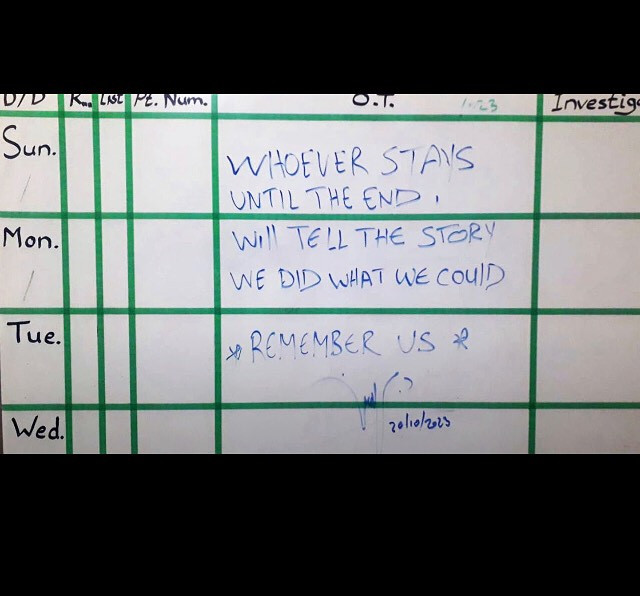 D/D
List Pt. Num. O.T. Investiga
Sun.
WHOEVER STAYS
UNTIL THE END.
Mon.
Will TELL THE STORY
WE DID WHAT WE COULD
Tue.
* REMEMBER US *
20/10/2023
Wed.